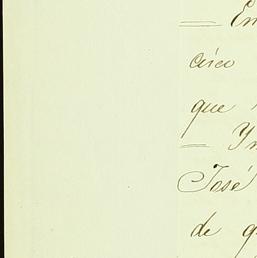 — En
circo
que
— Yn
José
de q